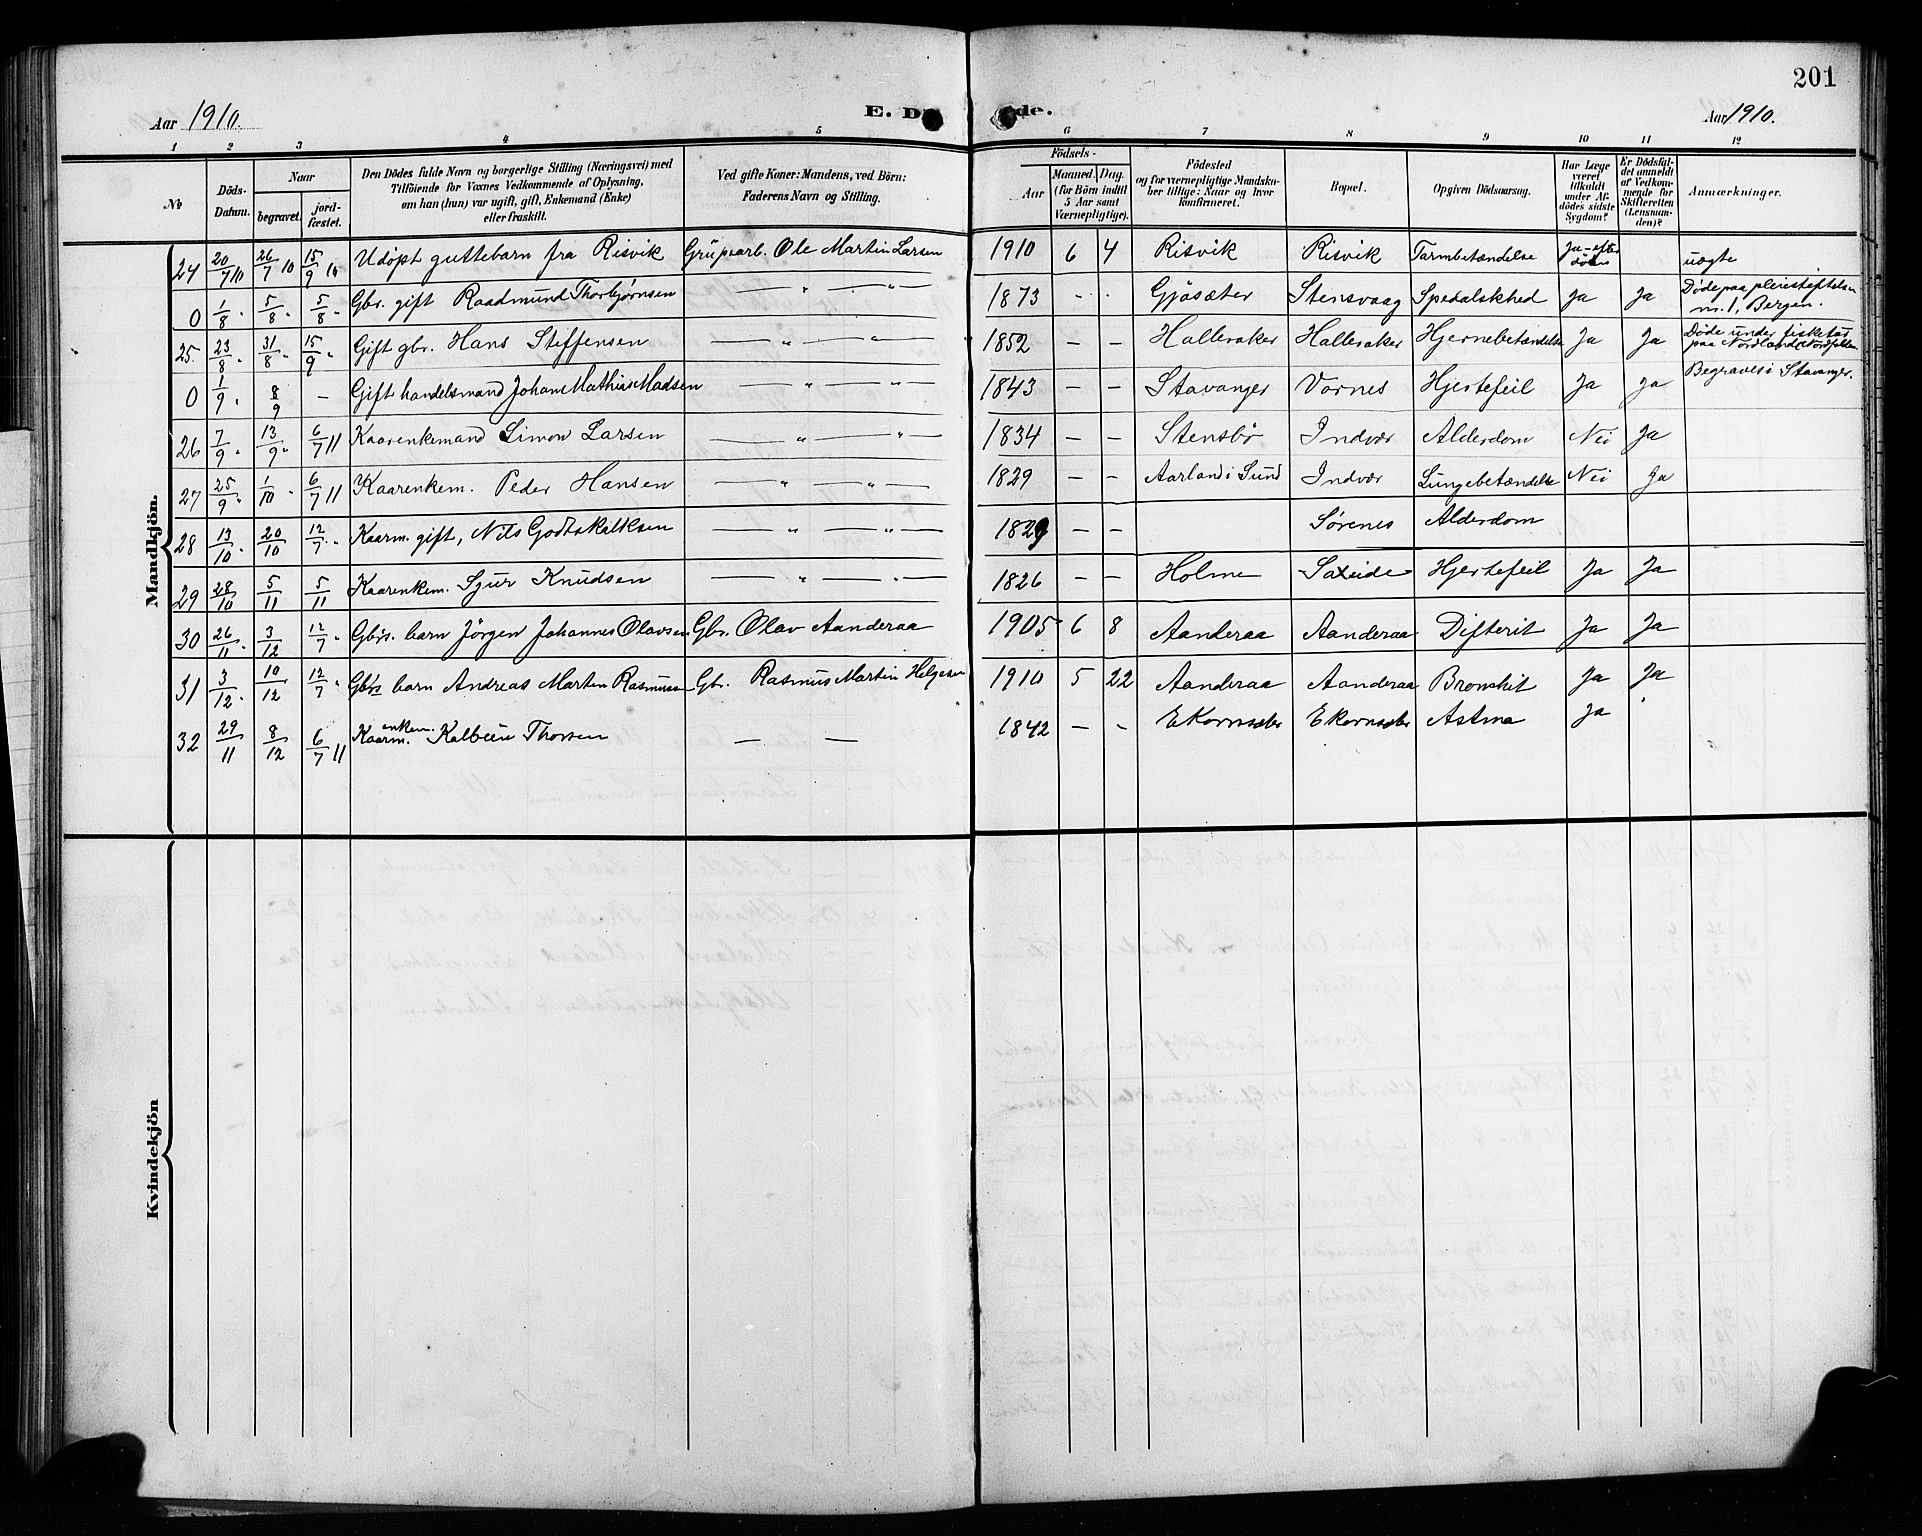 201
Aar 1910.
E. D de.
Aar 1910.
1 2 3 4 5 6 7 8 9 10 11 12
No
Döds-Datum.
Naar
begravet.
jord-fæstet.
Den Dödes fulde Navn og borgerlige Stilling (Næringsvei) med Tilföiende for Voxnes Vedkommende af Oplysning, om han (hun) var ugift, gift, Enkemand (Enke) eller fraskilt.
Ved gifte Koner: Mandens, ved Börn: Faderens Navn og Stilling.
Födsels-
Aar
Maaned.
Dag.
(for Börn indtil 5 Aar samt Værnepligtige).
Födested og for værnepligtige Mandskaber tillige: Naar og hvor konfirmeret.
Bopæl.
Opgiven Dödsaarsag.
Har Læge været tilkaldt under Afdödes sidste Sygdom?
Er Dödsfaldet anmeldt af Vedkommende for Skifteretten (Lensmanden)?
Anmærkninger.
Mandkjön.
24 20/7 10 26/7 10 15/9 10 Udöpt guttebarn fra Risvik Grubearb. Ole Martin Larsen 1910 6 4 Risvik Risvik Tarmbetændelse Ja - efter döden uægte
0 1/8 " 5/8 " 5/8 " Gbr. gift Raadmund Thorbjørnsen — " — " — 1873 - - Gjösæter Stensvaag Spedalskhed Ja Ja Døde paa pleiestiftelsen n. 1, Bergen.
25 23/8 " 31/8 " 15/9 " Gift gbr. Hans Steffensen — " — " — 1852 — — Halleraker Halleraker Hjernebetændelse Ja Ja Døde under fisketur paa Nordland, Nordfolden
0 1/9 " 8/9 — Gift handelsmand Johan Mathias Madsen — " — " — 1843 — — Stavanger Vornes Hjertefeil Ja Ja Begraves i Stavanger.
26 7/9 " 13/9 " 6/7 11 Kaarenkemand Simon Larsen — " — " — 1834 — — Stensbö Indvær Alderdom Nei Ja
27 25/9 " 1/10 " 6/7 11 Kaarenkem. Peder Hansen — " — " — 1829 — — Aarland i Sund Indvær Lungebetændelse Nei Ja
28 13/10 " 20/10 12/7 " Kaarm. gift, Nils Godtskalksen — " — " — 1829 — — Sørenes Alderdom
29 28/10 5/11 5/11 Kaarenkem. Sjur Knudsen — " — " — 1826 — — Holme Saxeide Hjertefeil Ja Ja
30 26/11 " 3/12 12/7 " Gbrs. barn Jörgen Johannes Olavsen Gbr. Olav Aanderaa 1905 6 8 Aanderaa Aanderaa Difterit Ja Ja
31 3/12 " 10/12 12/7 " Gbrs barn Andreas Marten Rasmussen Gbr. Rasmus Martin Helgesen 1910 5 22 Aanderaa Aanderaa Bronchit Ja Ja
32 29/11 8/12 6/7 11 Kaarm. enkem. Kolbein Thorsen — — 1842 — - Ekornsæter Ekornsæter Astma Ja
Kvindekjön